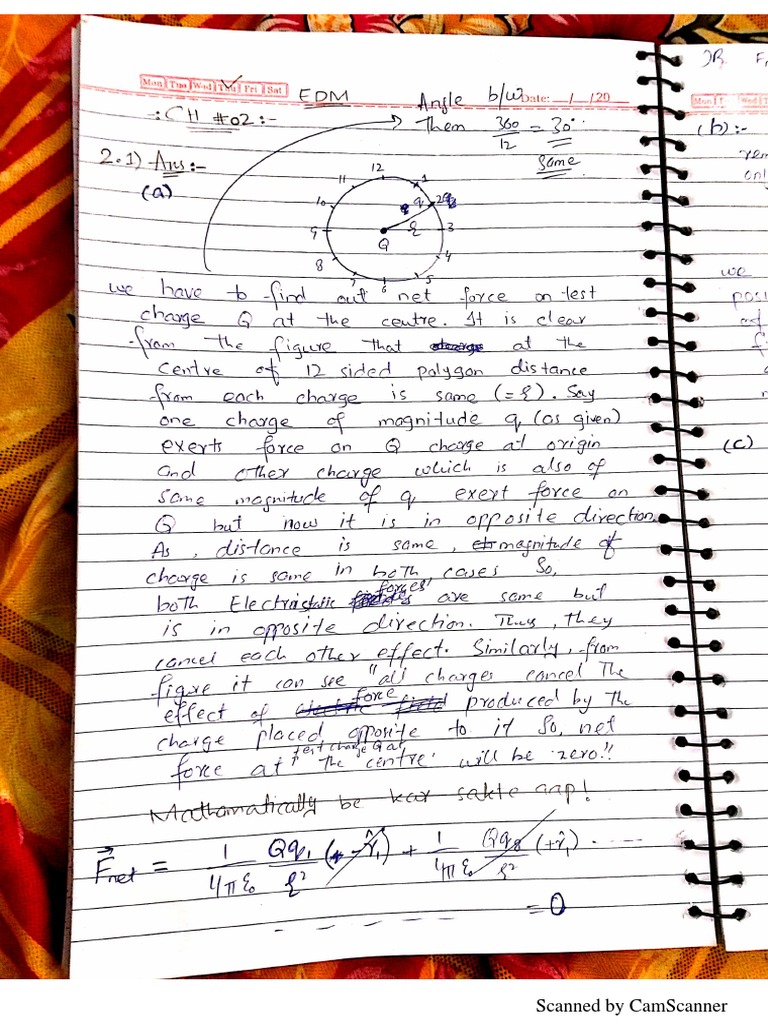 Mon Tue Wed Thu Fri Sat
EDM
Angle b/w Date: __/__/20__
-: CH #02:-
Them 360/12 = 30°
same
2.1) Ans:-
(a)
12
11
1
10
q
2
9
3
Q
8
4
7
6
5
we have to find out net force on test
charge Q at the centre. It is clear
from the figure that at the
centre of 12 sided polygon distance
from each charge is same (= ξ). Say
one charge of magnitude q (as given)
exerts force on Q charge at origin
and other charge which is also of
same magnitude of q exert force on
Q but now it is in opposite direction.
As, distance is same, magnitude of
charge is same in both cases So,
both Electrostatic forces are same but
is in opposite direction. Thus, they
cancel each other effect. Similarly, from
figure it can see "all charges cancel the
effect of force produced by the
charge placed opposite to it So, net
force at test charge Q at the centre will be zero!!
Mathematically be kar sakte aap!
F⃗net = 1/4πξ₀ Qq₁/ξ² (-r̂₁) + 1/4πξ₀ Qq₈/ξ² (+r̂₁) . ----
- - - - - = 0
(b):-
only
we
(c)
Scanned by CamScanner